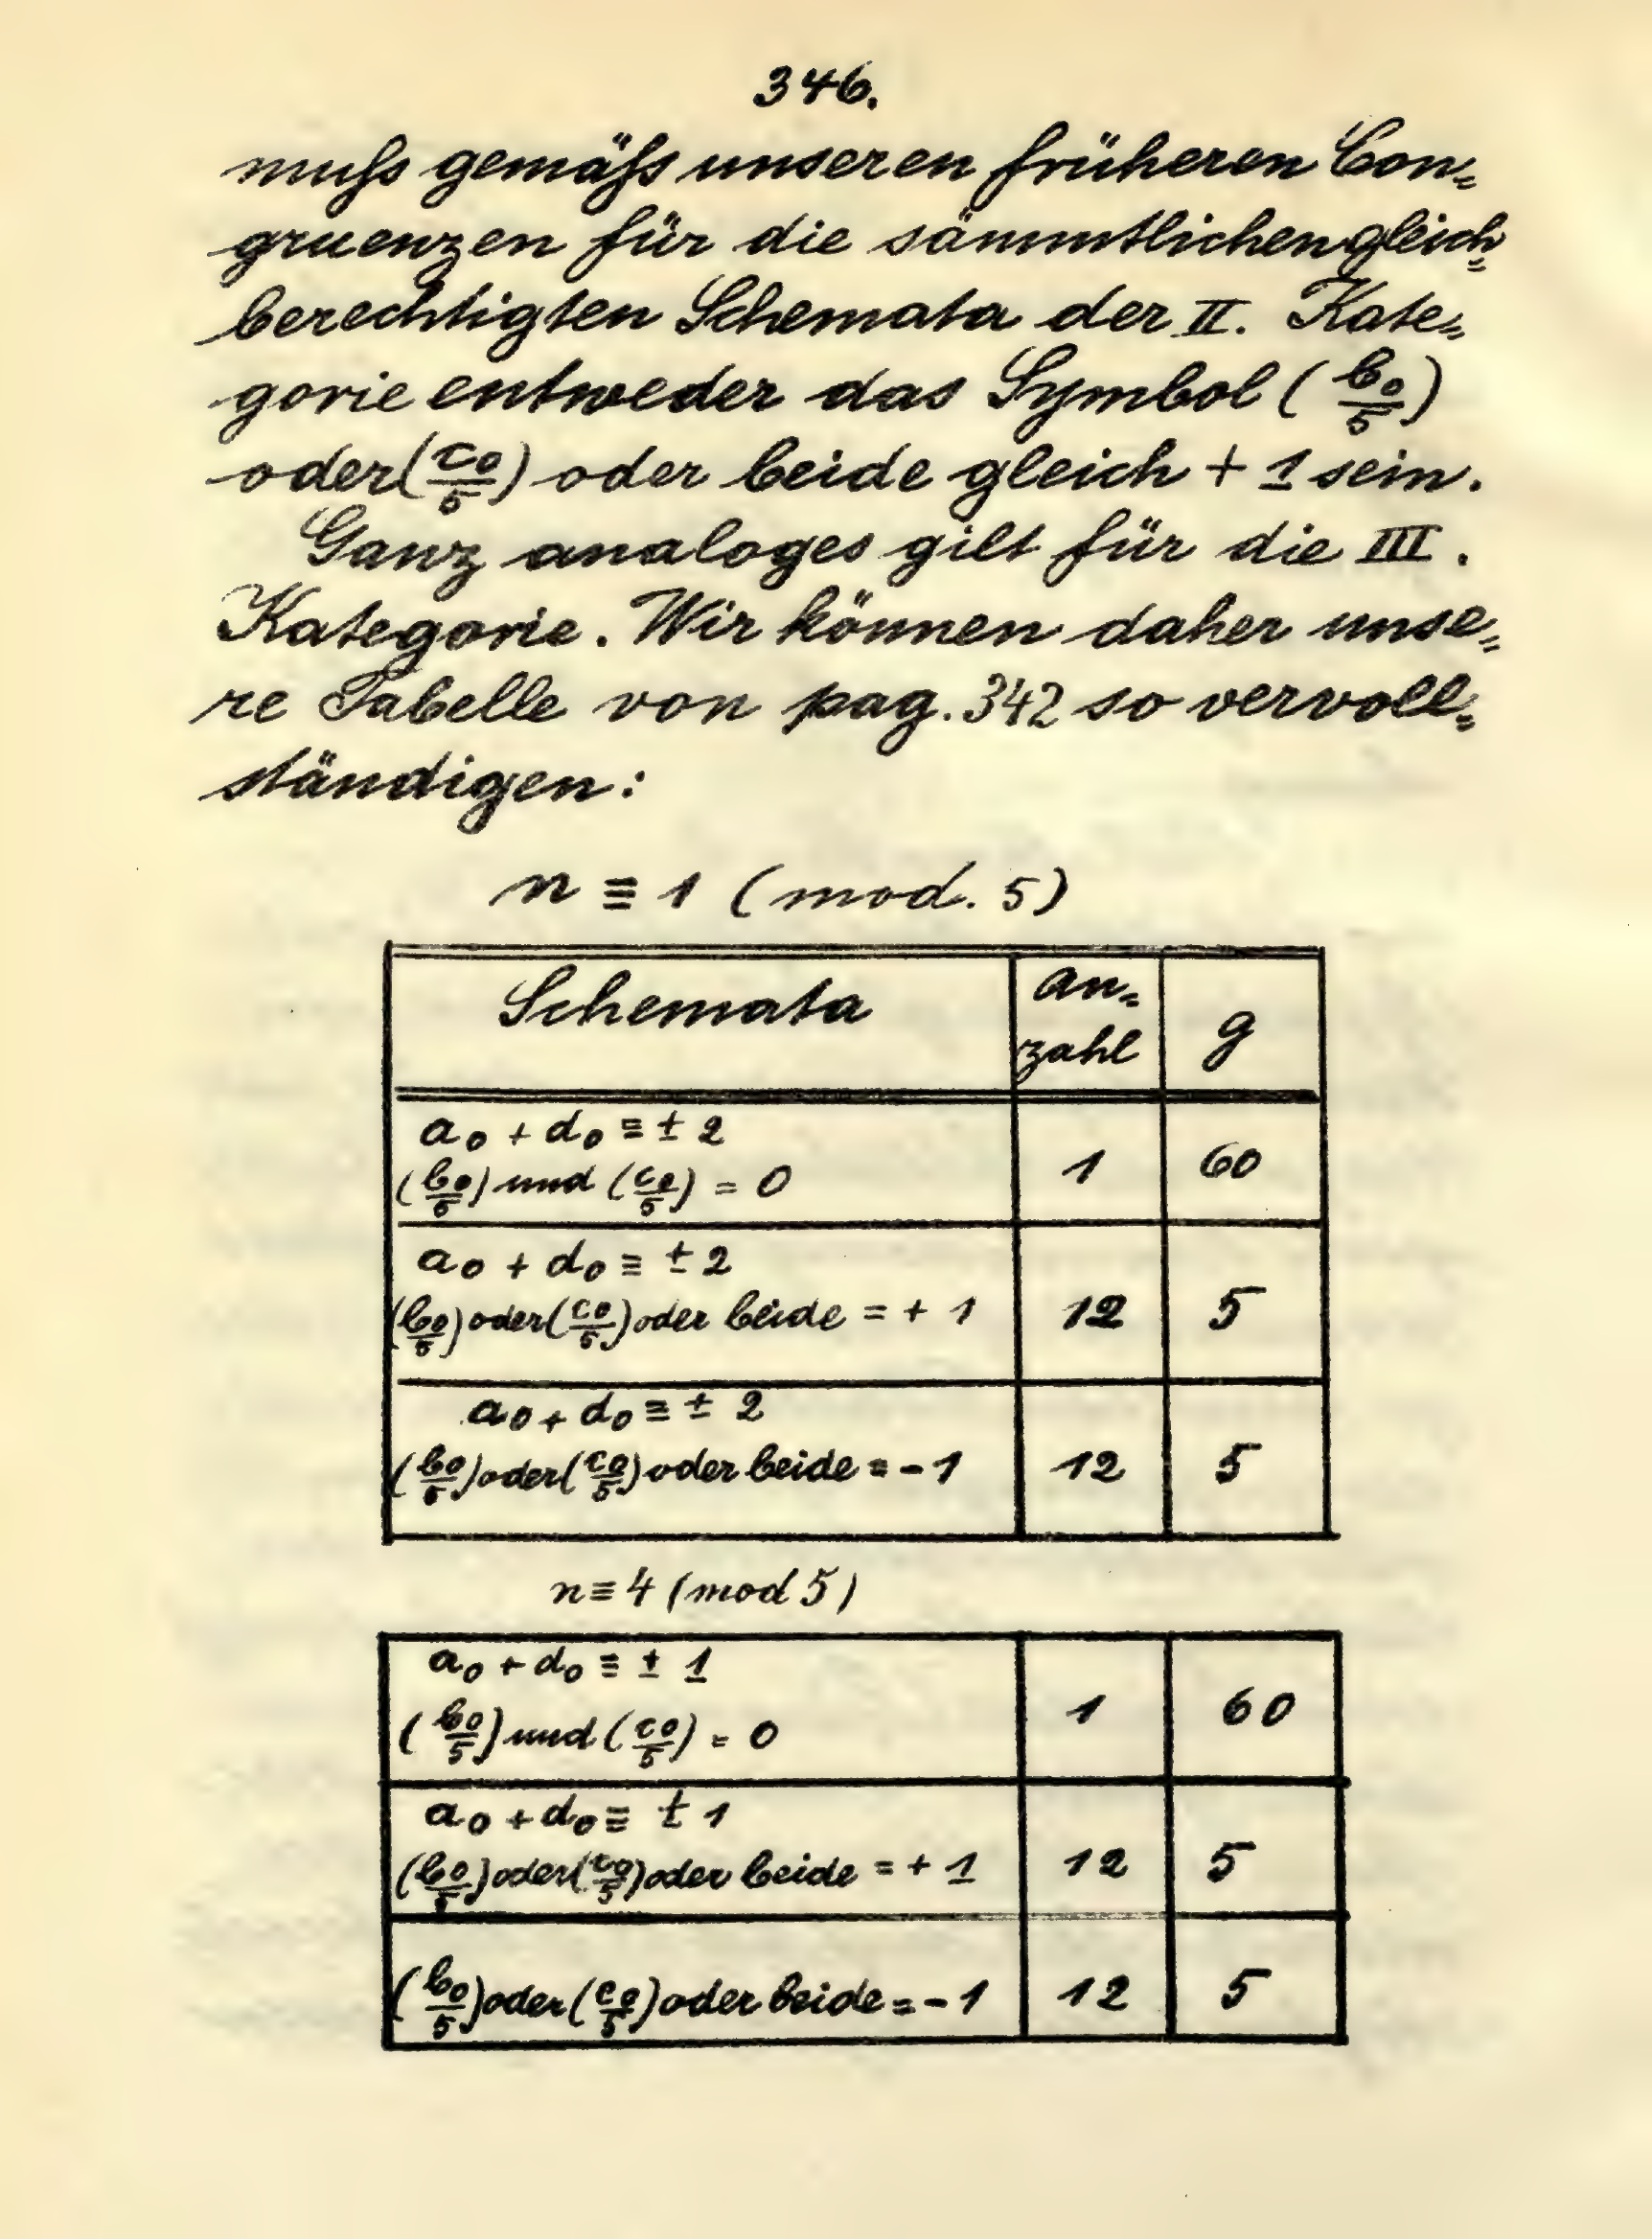 346.
muſs gemäſs unseren früheren Con=
gruenzen für die sämmtlichen gleich=
berechtigten Schemata der II. Kate=
gorie entweder das Symbol (b₀/5)
oder (c₀/5) oder beide gleich + 1 sein.
Ganz analoges gilt für die III.
Kategorie. Wir können daher unse=
re Tabelle von pag. 342 so vervoll=
ständigen:
n ≡ 1 (mod. 5)
Schemata an= g
zahl
a₀ + d₀ ≡ ± 2
(b₀/5) und (c₀/5) = 0 1 60
a₀ + d₀ ≡ ± 2
(b₀/5) oder (c₀/5) oder beide = + 1 12 5
a₀ + d₀ ≡ ± 2
(b₀/5) oder (c₀/5) oder beide = - 1 12 5
n ≡ 4 (mod 5)
a₀ + d₀ ≡ ± 1
(b₀/5) und (c₀/5) = 0 1 60
a₀ + d₀ ≡ ± 1
(b₀/5) oder (c₀/5) oder beide = + 1 12 5
(b₀/5) oder (c₀/5) oder beide = - 1 12 5